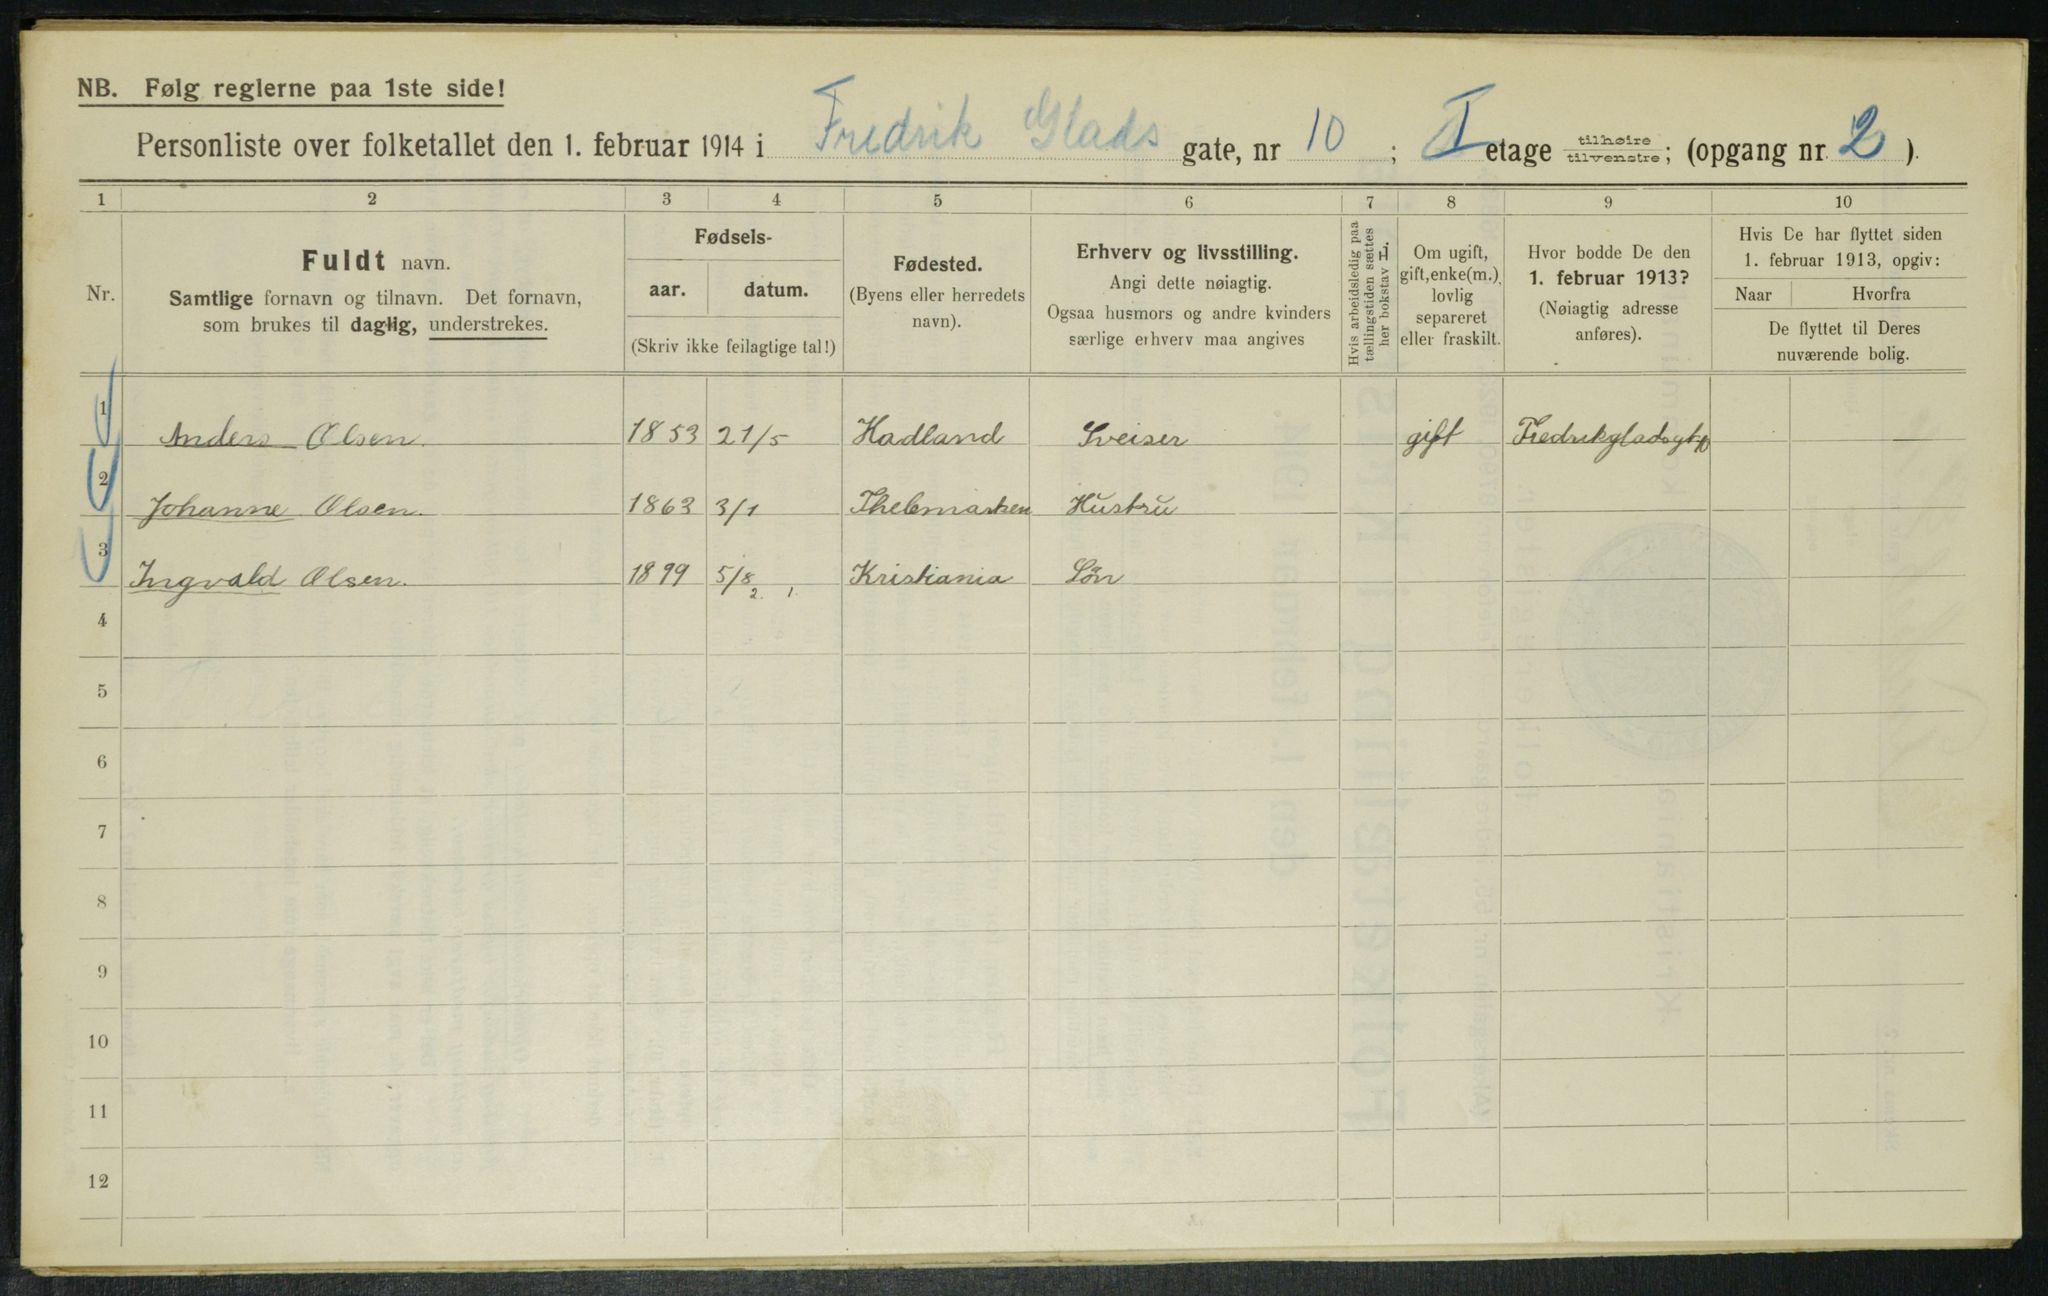 NB. Følg reglerne paa 1ste side!
Personliste over folketallet den 1. februar 1914 i Fredrik Glads gate, nr 10 ; I etage tilhøire tilvenstre; (opgang nr. 2 ).
1 2 3 4 5 6 7 8 9 10
Nr.
Fuldt navn.
Samtlige fornavn og tilnavn. Det fornavn,
som brukes til daglig, understrekes.
Fødsels-
aar. datum.
(Skriv ikke feilagtige tal!)
Fødested.
(Byens eller herredets
navn).
Erhverv og livsstilling.
Angi dette nøiagtig.
Ogsaa husmors og andre kvinders
særlige erhverv maa angives
Hvis arbeidsledig paa
tællingstiden sættes
her bokstav L.
Om ugift,
gift, enke(m.),
lovlig
separeret
eller fraskilt.
Hvor bodde De den
1. februar 1913?
(Nøiagtig adresse
anføres).
Hvis De har flyttet siden
1. februar 1913, opgiv:
Naar Hvorfra
De flyttet til Deres
nuværende bolig.
1 Anders Olsen. 1853 21/5 Hadland Sveiser gift Fredrikgladsgt 10
2 Johanne Olsen. 1863 3/1 Thelemarken Hustru
3 Ingvald Olsen. 1899 5/8 Kristiania Sön
2. 1.
4
5
6
7
8
9
10
11
12